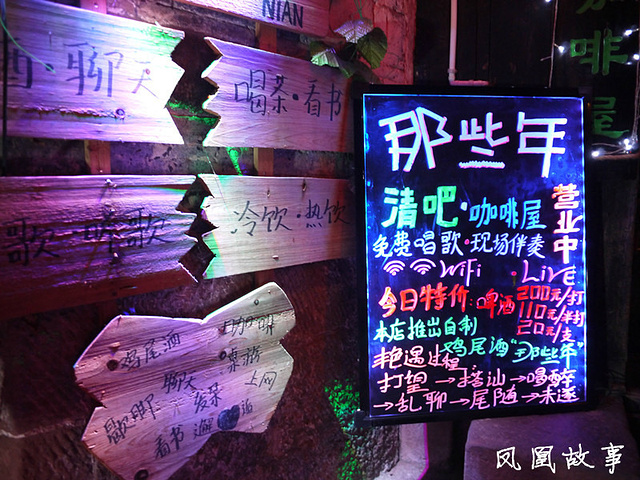 NIAN
酒·聊天
喝茶·看书
冷饮·热饮
歌·听歌
鸡尾酒
咖啡
聊天
桌游
上网
歇脚
发呆
看书
咖啡屋
那些年
清吧·咖啡屋
营业中
免费唱歌·现场伴奏
WiFi ·LiVE
今日特价:啤酒 200元/打
110元/半打
20元/支
本店推出自制
鸡尾酒"那些年"
艳遇过程
打望→搭讪→喝醉
→乱聊→尾随→未遂
凤凰故事